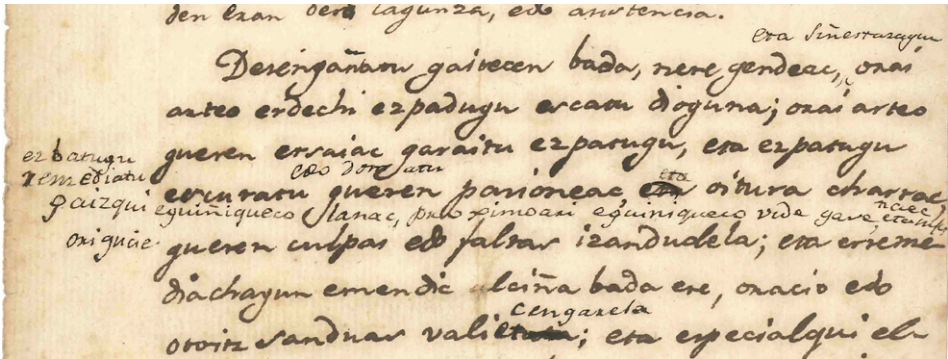 den eran bere lagunza, edo asistencia.
eta siñestatzagun
Desengañatu gaitecen bada, nere gendeac, orai
arteo erdechi ezpadugu escatu dioguna; orai arteo
gueren etsaiac garaitu ezpatugu, eta ezpatugu
ezbatugu
remediatu
edo domatu
escuratu gueren pasioneac, eta oitura charrac,
gaizqui eguiñiqueco lanac, proximoari eguiñiqueco vide gave,
origucie
gueren culpas edo faltas izandudela; eta erreme
diachagun emendic alciña bada ere, oracio edo
cengarela
otoitz sanduas vali; eta especialqui el-